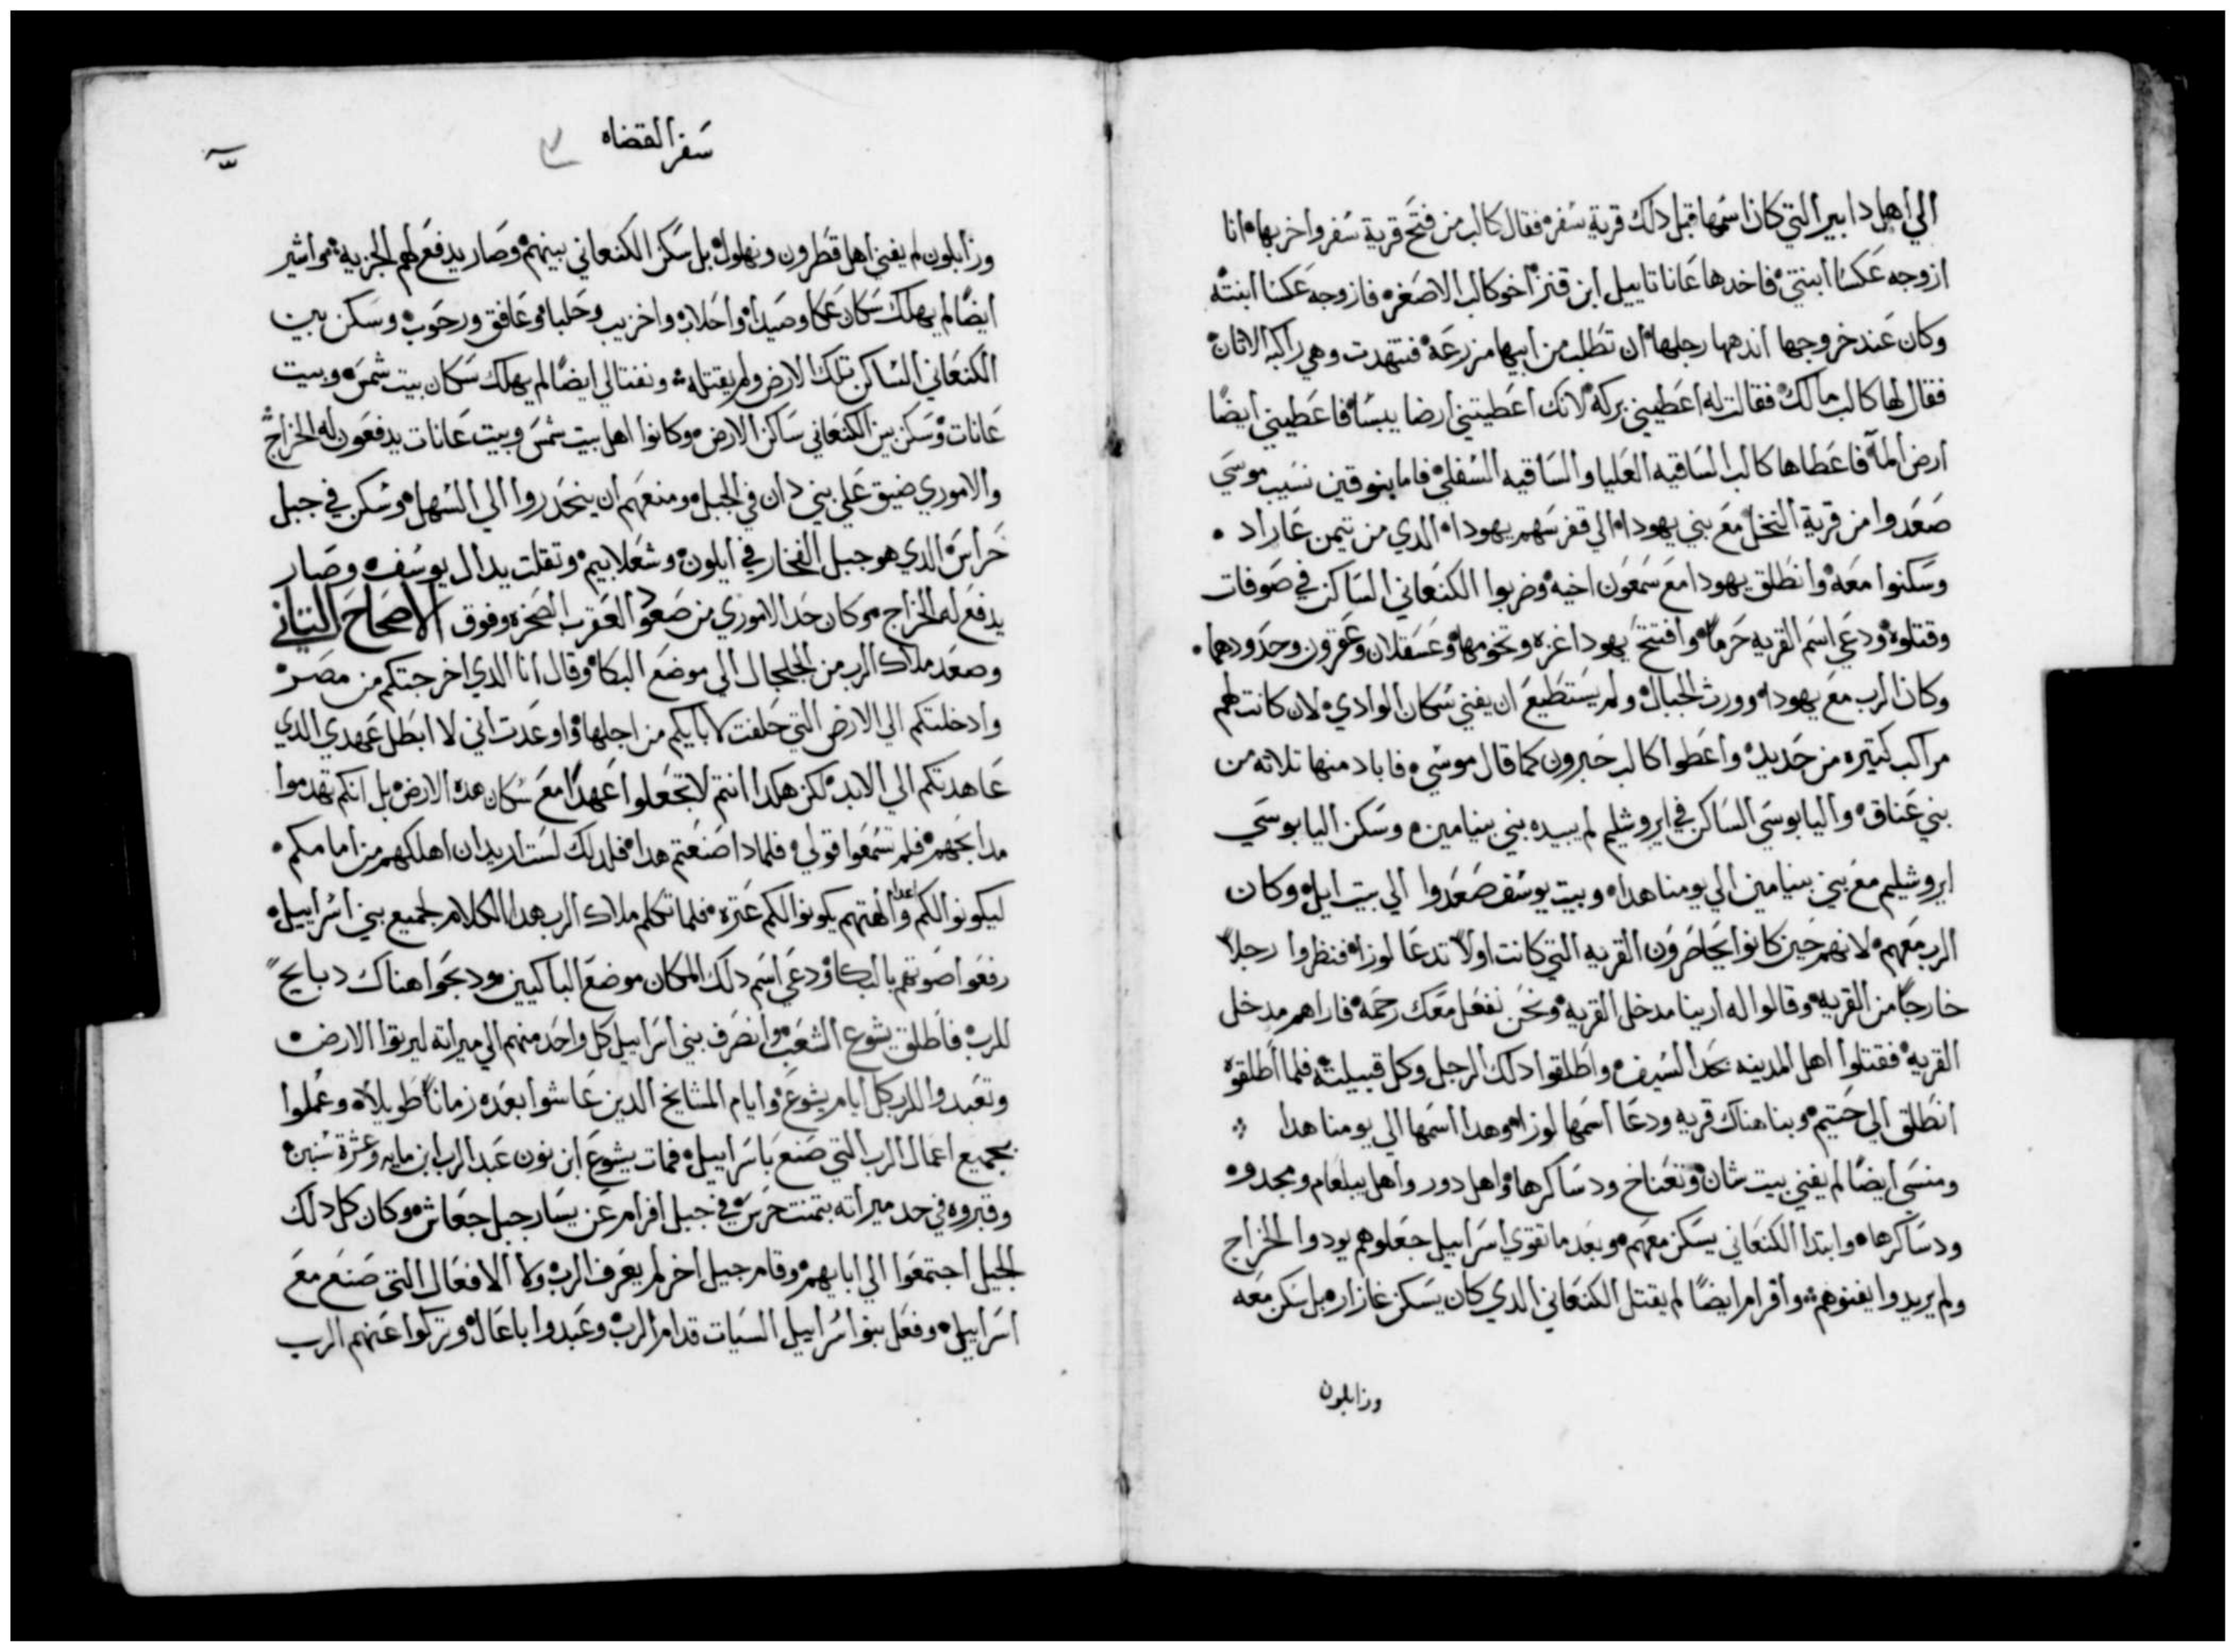 الي اهل دابير التي كان اسمها قبل دلك قرية سفر فقال كالب من فتح قرية سفر واخربها انا
ازوجه عكسا ابنتي فاخدها عاناتاييل ابن قنز اخو كالب الاصغر فازوجه عكسا ابنته
وكان عند خروجها اندهها رجلها ان تطلب من ابيها مزرعة فتنهدت وهي راكبه الاتان
فقال لها كالب مالك فقالت له اعطيني بركة لانك اعطيتني ارضا يبسا فاعطيني ايضا
ارض الماء فاعطاها كالب الساقيه العليا والساقيه السفلي فاما بنو قين نسيب موسي
صعدوا من قرية النخل مع بني يهودا الي قفر سهم يهودا الدي من تيمن عاراد
وسكنوا معه وانطلق يهودا مع سمعون اخيه وضربوا الكنعاني الساكن في صوفات
وقتلوه ودعي اسم القريه حرما وافتتح يهودا غزه وتخومها وعسقلان وعقرون وحدودهما
وكان الرب مع يهودا وورث الجبال ولم يستطيع ان يفني سكان الوادي لان كانت لهم
مراكب كتيره من حديد واعطوا كالب حبرون كما قال موسي فاباد منها تلاته من
بني عناق واليابوسي الساكن في ايروشليم لم يبيده بني بنيامين وسكن اليابوسي
ايروشليم مع بني بنيامين الي يومنا هدا وبيت يوسف صعدوا الي بيت ايل وكان
الرب معهم لانهم حين كانوا يحاصرون القريه التي كانت اولا تدعا لوزا فنظروا رجلا
خارجا من القريه وقالوا له ارينا مدخل القريه ونحن نفعل معك رحمة فاراهم مدخل
القريه فقتلوا اهل المدينه بحد السيف واطلقوا دلك الرجل وكل قبيلته فلما اطلقوه
انطلق الي حتيم وبنا هناك قريه ودعا اسمها لوزا وهدا اسمها الي يومنا هدا
ومنسي ايضا لم يفني بيت شان وتعناخ ودساكرها واهل دور واهل يبلعام ومجدو
ودساكرها وابتدا الكنعاني يسكن معهم وبعد ما تقوي اسراييل جعلوهم يودوا الخراج
ولم يريدوا يفنوهم وافرام ايضا لم يقتل الكنعاني الدي كان يسكن غازار بل سكن معه
وزابلون
سفر القضاه
وزابلون لم يفني اهل قطرون ونهلول بل سكن الكنعاني بينهم وصار يدفع لهم الجزيه واشير
ايضا لم يهلك سكان عكا وصيدا واحلاب واخزيب وحلبا وعافق ورحوب وسكن بين
الكنعاني الساكن تلك الارض ولم يقتله ونفتالي ايضا لم يهلك سكان بيت شمس وبيت
عانات وسكن بين الكنعاني ساكن الارض وكانوا اهل بيت شمس وبيت عانات يدفعون له الخراج
والاموري ضيق علي بني دان في الجبل ومنعهم ان ينحدروا الي السهل وسكن في جبل
حراس الدي هو جبل الفخار في ايلون وشعلابيم وتقلت يد ال يوسف وصار
يدفع له الخراج وكان حد الاموري من صعود العقرب الصخره وفوق الاصحاح التاني
وصعد ملاك الرب من الجلجال الي موضع البكا وقال انا الدي اخرجتكم من مصر
وادخلتكم الي الارض التي حلفت لابايكم من اجلها واوعدت اني لا ابطل عهدي الدي
عاهدتكم الي الابد لكن هكدا انتم لا تجعلوا عهدا مع سكان هده الارض بل انكم تهدموا
مدابحهم فلم تسمعوا قولي فلمادا صنعتم هدا فلدلك لست اريد ان اهلكهم من امامكم
ليكونوا لكم اعدا والهتهم يكونوا لكم عتره فلما تكلم ملاك الرب هدا الكلام لجميع بني اسراييل
رفعوا صوتهم بالبكا ودعي اسم دلك المكان موضع الباكيين ودبحوا هناك دبايح
للرب فاطلق يشوع الشعب وانصرف بني اسراييل كل واحد منهم الي ميراته ليرتوا الارض
وتعبدوا للرب كل ايام يشوع وايام المشايخ الدين عاشوا بعده زمانا طويلا وعملوا
بجميع اعمال الرب التي صنع باسراييل فمات يشوع ابن نون عبد الرب ابن مايه وعشرة سنين
وقبروه في حد ميراته بتمنت حرس في جبل افرام عن يسار جبل جعاش وكان كل دلك
الجيل اجتمعوا الي ابايهم وقام جيل اخر لم يعرف الرب ولا الافعال التي صنع مع
اسراييل وفعل بنوا اسراييل السيات قدام الرب وعبدوا باعال وتركوا عنهم الرب